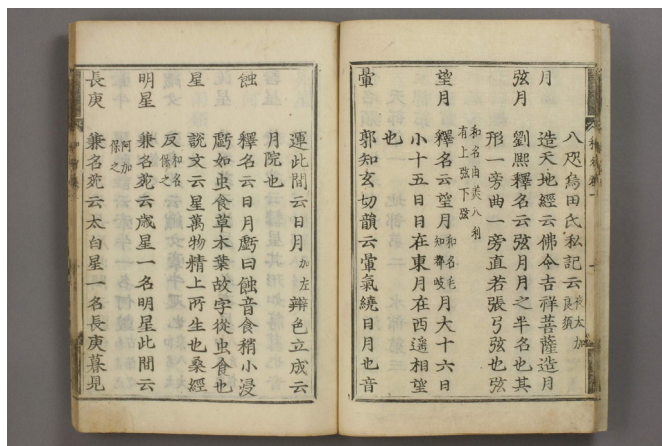 八咫烏田氏私記云夜太加良須
月　造天地經云佛令吉祥菩薩造月
弦月　劉熙釋名云弦月月之半名也其
形一旁曲一旁直若張弓弦也弦
和名由美八利有上弦下弦
望月　釋名云望月和名毛知都岐月大十六日
小十五日日在東月在西遥相望
也
暈　郭知玄切韻云暈氣繞日月也音
運此間云日月加左辨色立成云
月院也
蝕　釋名云日月虧曰蝕音食稍小浸
虧如虫食草木葉故字從虫食也
星　說文云星萬物精上所生也桑經
反和名保之
明星　兼名苑云歳星一名明星此間云
阿加保之
長庚　兼名苑云太白星一名長庚暮見